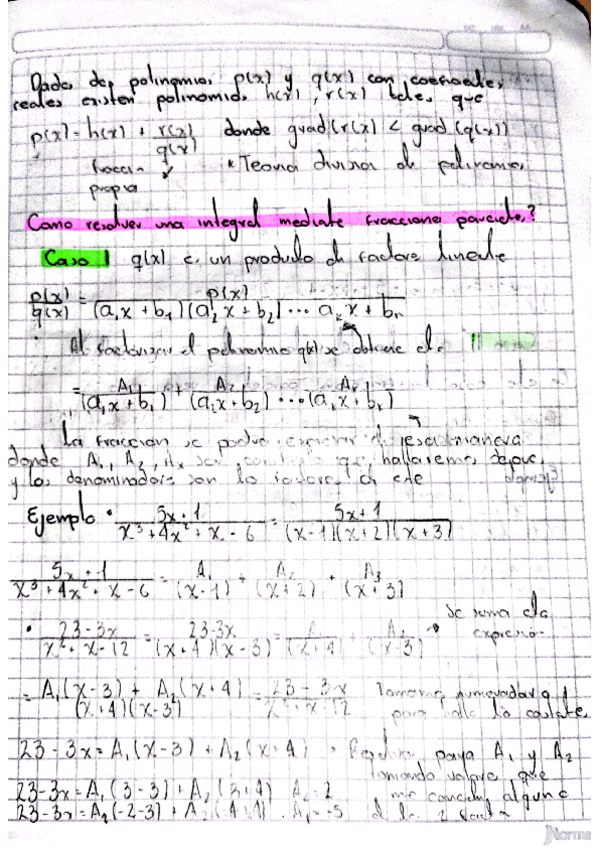 Dados dos polinomios p(x) y q(x) con coeficientes
reales existen polinomios h(x), r(x) tales que
p(x) = h(x) + r(x)/q(x) donde grad(r(x) < grad(q(x))
fraccion propia * Teoria division de polinomios
Como resolver una integral mediate fracciones parciales?
Caso 1 q(x) es un producto de factores lineales
p(x)/q(x) = p(x)/(a₁x + b₁)(a₂x + b₂)...aₖx + bₙ
Al factorizar el polinomio q(x) se obtiene
= A₁/(a₁x + b₁) + A₂/(a₂x + b₂) ... Aₖ/(aₖx + bₖ)
La fraccion se podra expresar de esa manera
donde A₁, A₂, Aₖ son que hallaremos depues
y los denominadores son los factores de
Ejemplo • 5x+1/x³+4x²+x-6 = 5x+1/(x-1)(x+2)(x+3)
5x+1/x³+4x²+x-6 = A₁/(x-1) + A₂/(x+2) + A₃/(x+3)
• 23-3x/x²+x-12 = 23-3x/(x+4)(x-3) = A₁/(x+4) + A₂/(x-3) → se suma
expresion
= A₁(x-3) + A₂(x+4)/(x+4)(x-3) = 23-3x/x²+x-12 Tomamos numeradar
para halla las
23-3x = A₁(x-3) + A₂(x+4) • Resolver para A₁ y A₂
tomando valores que
23-3x = A₁(3-3) + A₂(3+4) A₂=2 me cancelen alguno
23-3x = A₁(-2-3) + A₂(-4+4). A₁=-5 d los 2
Norma